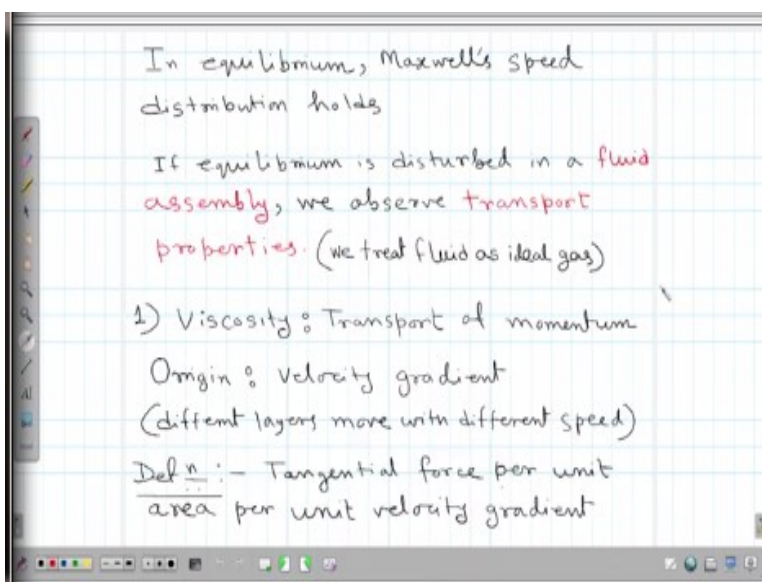 In equilibrium, Maxwell's speed
distribution holds
If equilibrium is disturbed in a fluid
assembly, we observe transport
properties. (we treat fluid as ideal gas)
1) Viscosity : Transport of momentum
Origin : Velocity gradient
(diffemt layers move with different speed)
Defn :- Tangential force per unit
area per unit velocity gradient